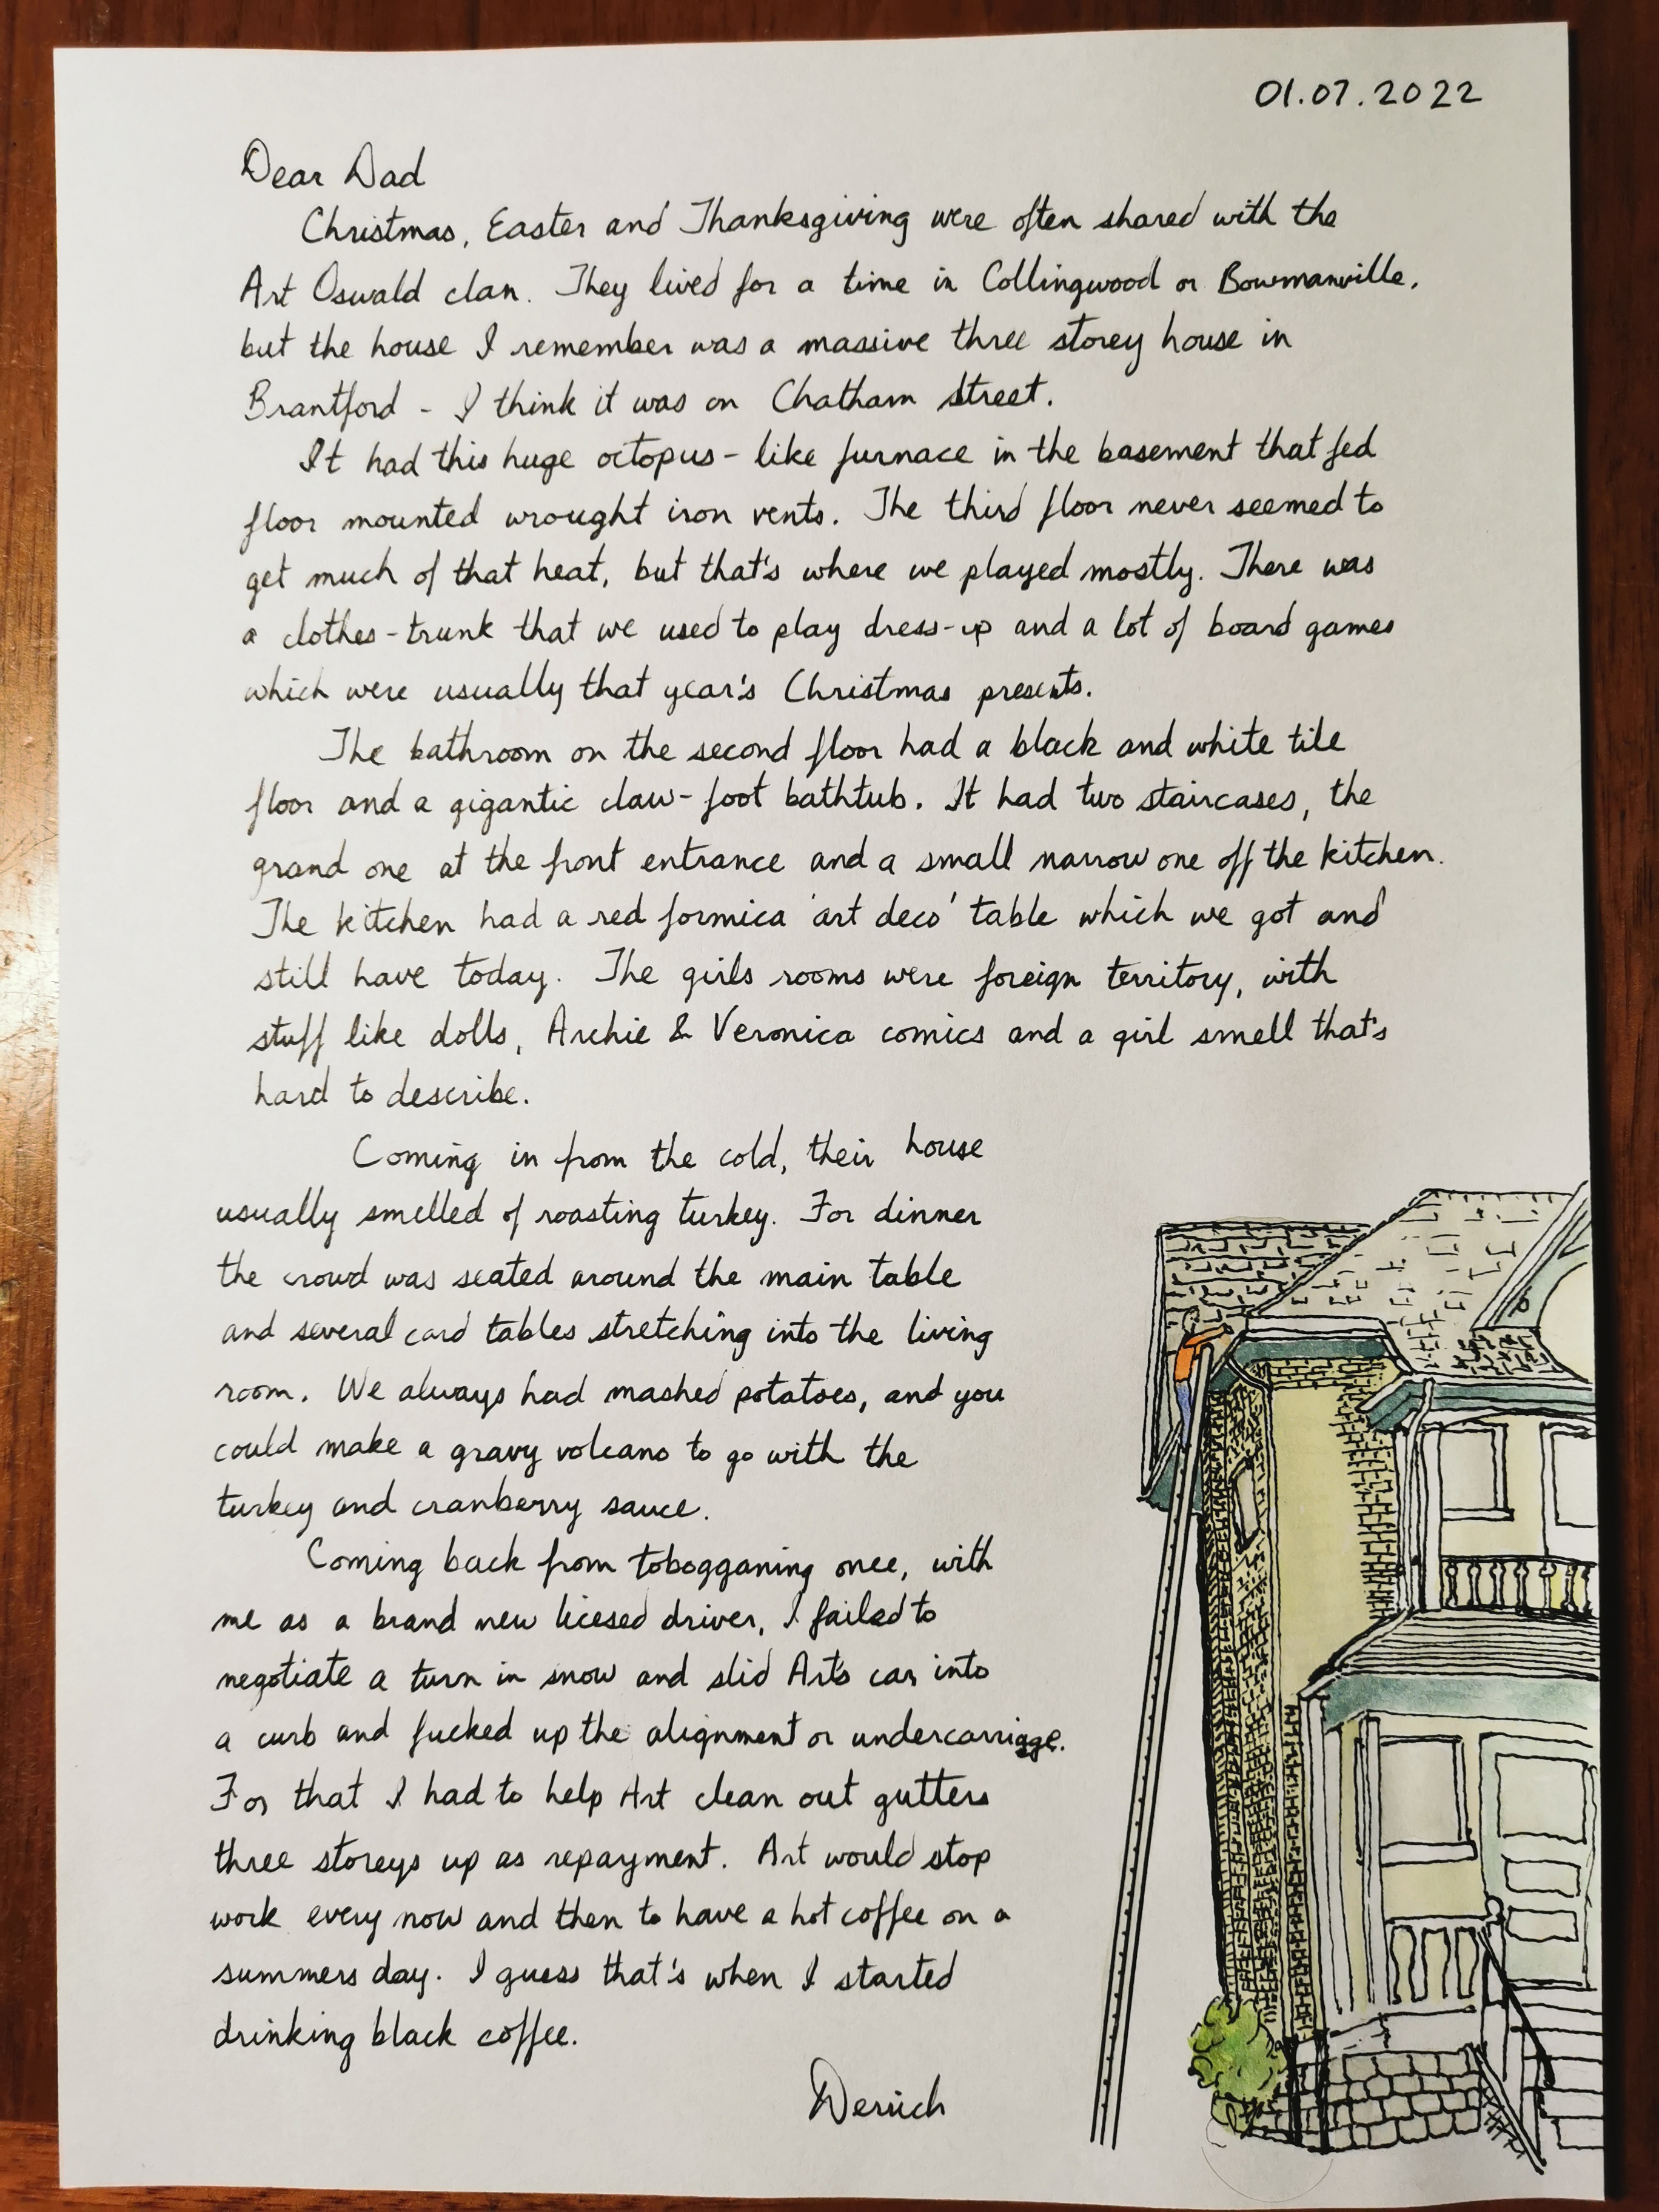 01.07.2022
Dear Dad
Christmas, Easter and Thanksgiving were often shared with the
Art Oswald clan. They lived for a time in Collingwood or Bowmanville,
but the house I remember was a massive three storey house in
Brantford - I think it was on Chatham Street.
It had this huge octopus-like furnace in the basement that fed
floor mounted wrought iron vents. The third floor never seemed to
get much of that heat, but that's where we played mostly. There was
a clothes-trunk that we used to play dress-up and a lot of board games
which were usually that year's Christmas presents.
The bathroom on the second floor had a black and white tile
floor and a gigantic claw-foot bathtub. It had two staircases, the
grand one at the front entrance and a small narrow one off the kitchen.
The kitchen had a red formica 'art deco' table which we got and
still have today. The girls rooms were foreign territory, with
stuff like dolls, Archie & Veronica comics and a girl smell that's
hard to describe.
Coming in from the cold, their house
usually smelled of roasting turkey. For dinner
the crowd was seated around the main table
and several card tables stretching into the living
room. We always had mashed potatoes, and you
could make a gravy volcano to go with the
turkey and cranberry sauce.
Coming back from tobogganing once, with
me as a brand new licesed driver, I failed to
negotiate a turn in snow and slid Art's car into
a curb and fucked up the alignment or undercarriage.
For that I had to help Art clean out gutters
three storeys up as repayment. Art would stop
work every now and then to have a hot coffee on a
summers day. I guess that's when I started
drinking black coffee.
Derrich